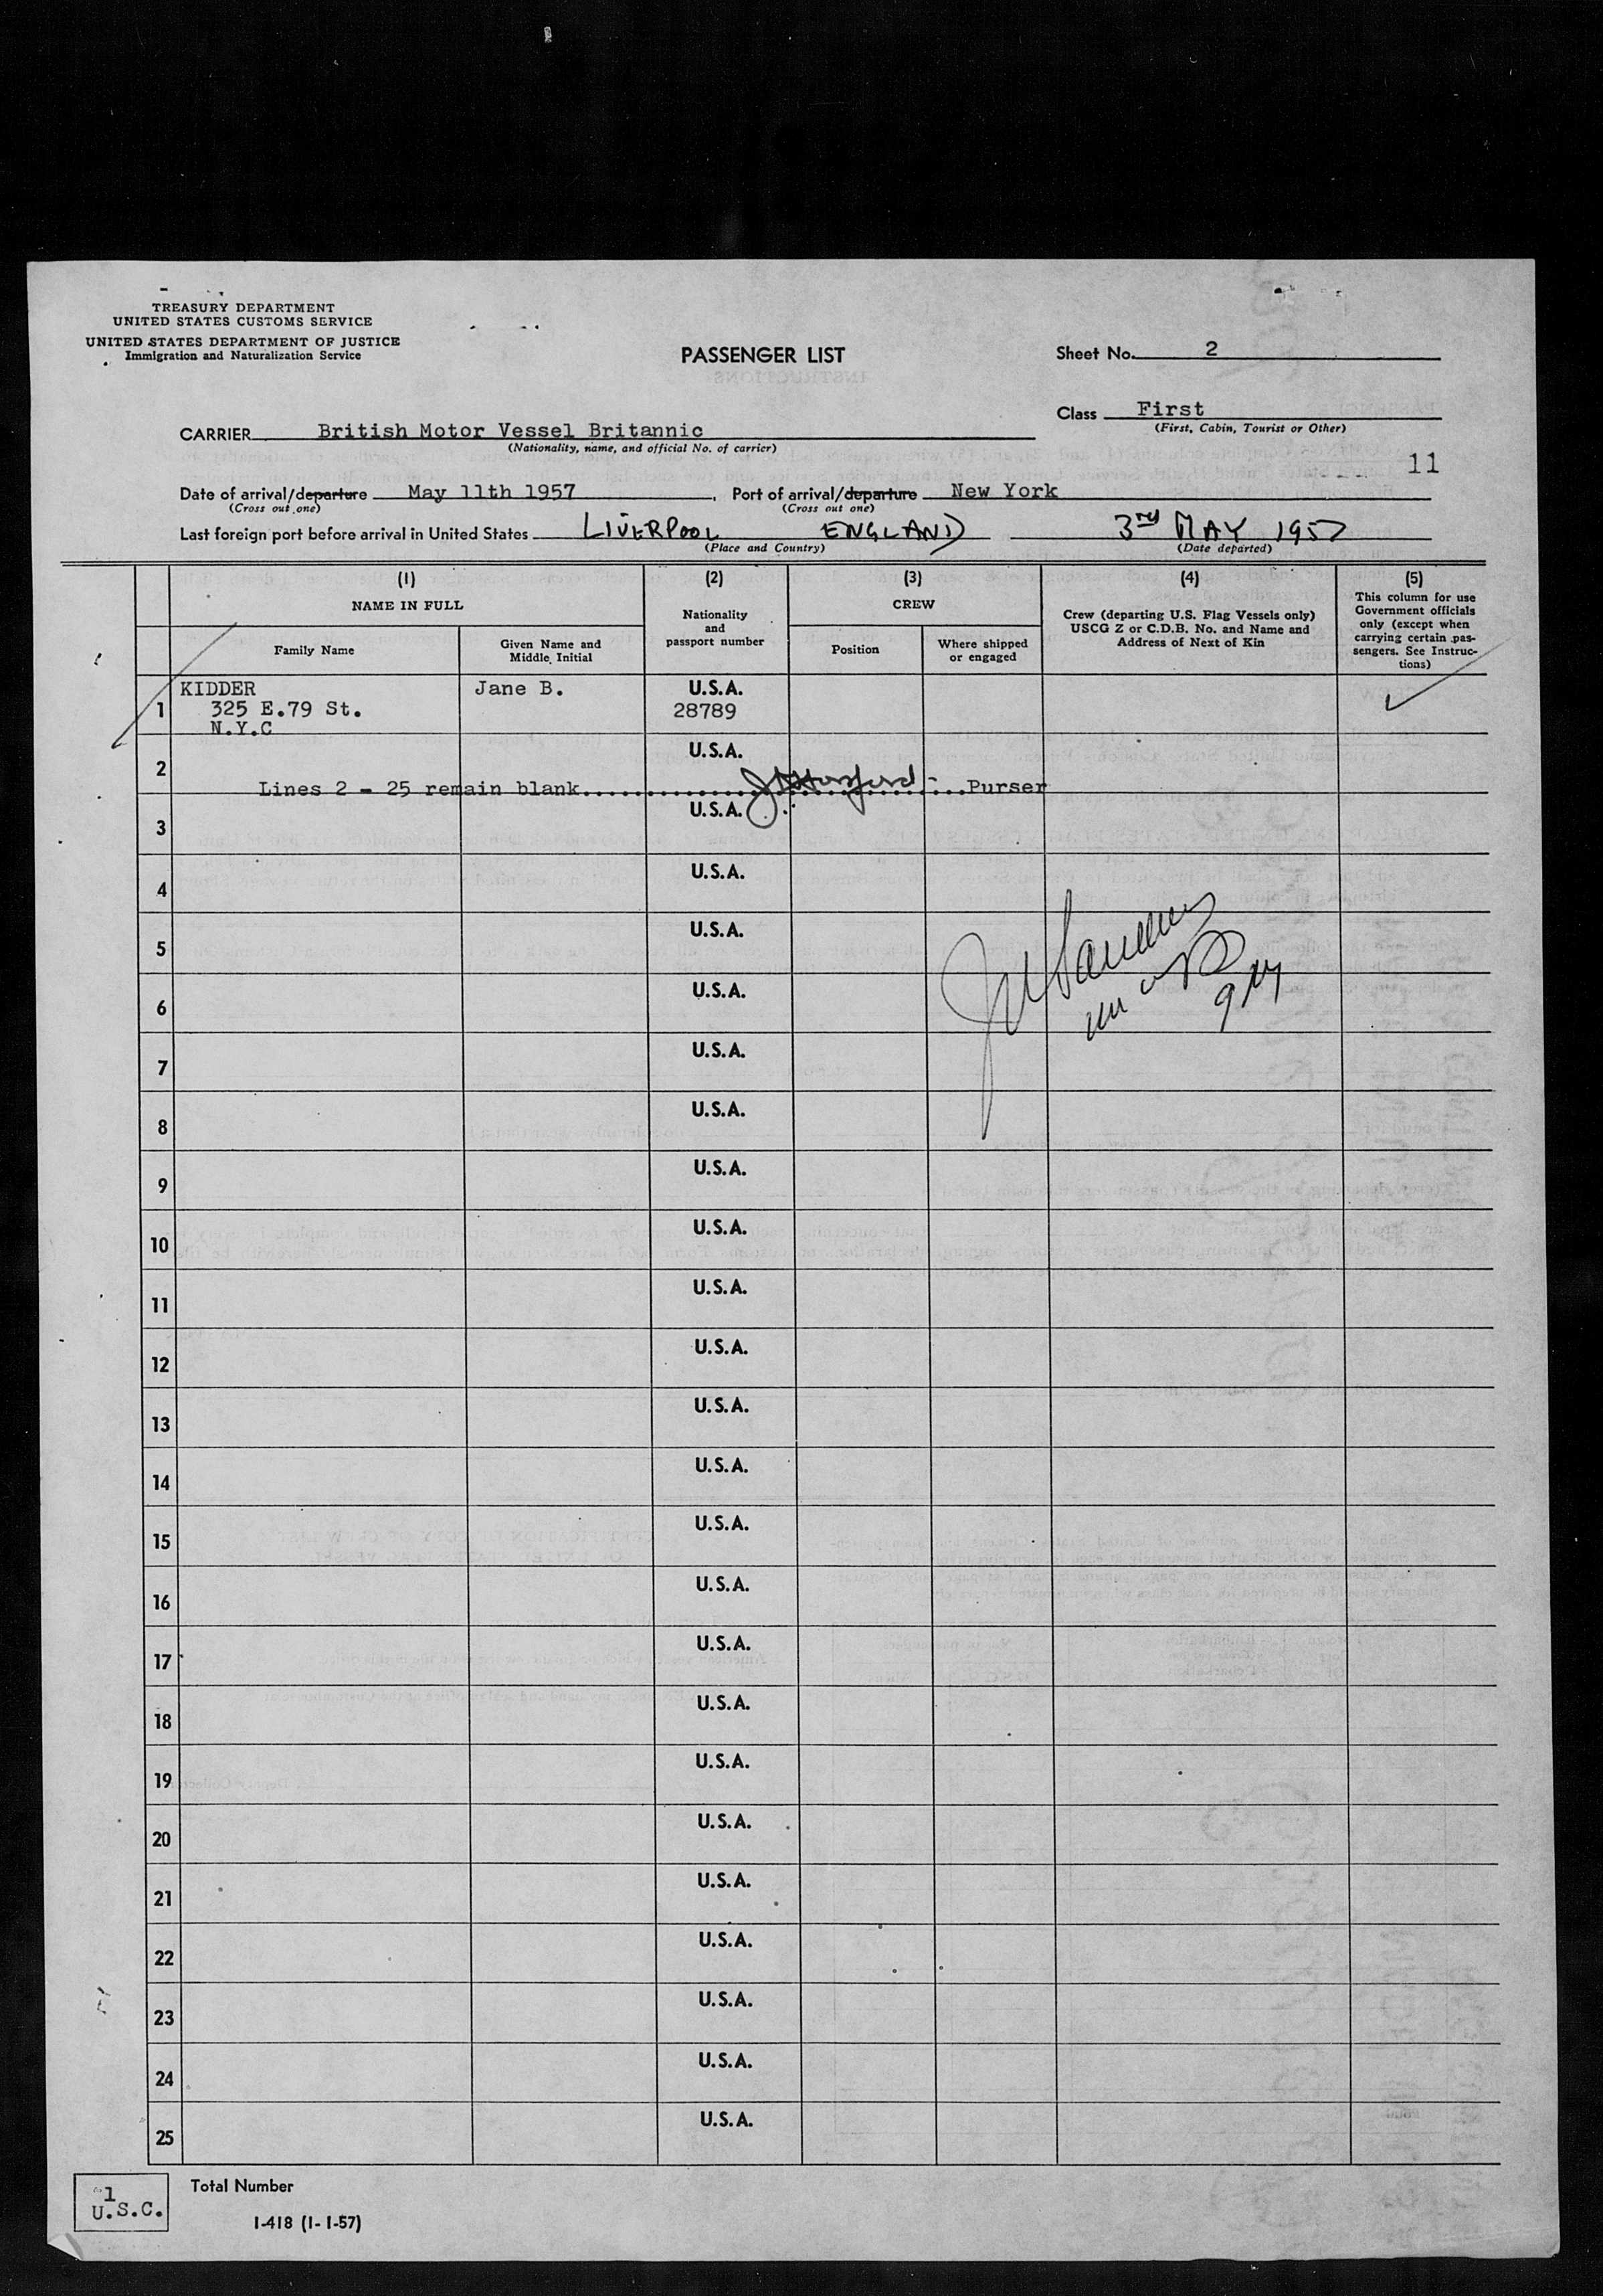 TREASURY DEPARTMENT
UNITED STATES CUSTOMS SERVICE
UNITED STATES DEPARTMENT OF JUSTICE
Immigration and Naturalization Service
PASSENGER LIST
Sheet No. 2
Class First
(First, Cabin, Tourist or Other)
CARRIER British Motor Vessel Britannic
(Nationality, name, and official No. of carrier)
11
Date of arrival/departure May 11th 1957, Port of arrival/departure New York
(Cross out one) (Cross out one)
Last foreign port before arrival in United States LIVERPOOL ENGLAND 3rd MAY 1957
(Place and Country) (Date departed)
(1) (2) (3) (4) (5)
NAME IN FULL
Nationality and passport number
CREW
Crew (departing U.S. Flag Vessels only)
USCG Z or C.D.B. No. and Name and
Address of Next of Kin
This column for use
Government officials
only (except when
carrying certain pas-
sengers. See Instruc-
tions)
Family Name
Given Name and
Middle Initial
Position
Where shipped
or engaged
1 KIDDER Jane B. U.S.A.
325 E.79 St. 28789
N.Y.C
2 U.S.A.
Lines 2 - 25 remain blank.......................Purser
3 U.S.A.
4 U.S.A.
5 U.S.A.
6 U.S.A.
7 U.S.A.
8 U.S.A.
9 U.S.A.
10 U.S.A.
11 U.S.A.
12 U.S.A.
13 U.S.A.
14 U.S.A.
15 U.S.A.
16 U.S.A.
17 U.S.A.
18 U.S.A.
19 U.S.A.
20 U.S.A.
21 U.S.A.
22 U.S.A.
23 U.S.A.
24 U.S.A.
25 U.S.A.
1
U.S.C.
Total Number
I-418 (1-1-57)